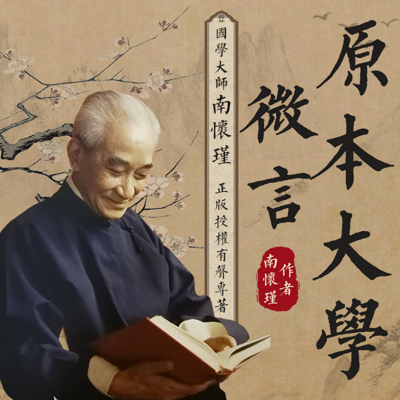 原本大學
微言
作者
南懷瑾
國學大師 南懷瑾 正版授權有聲專著